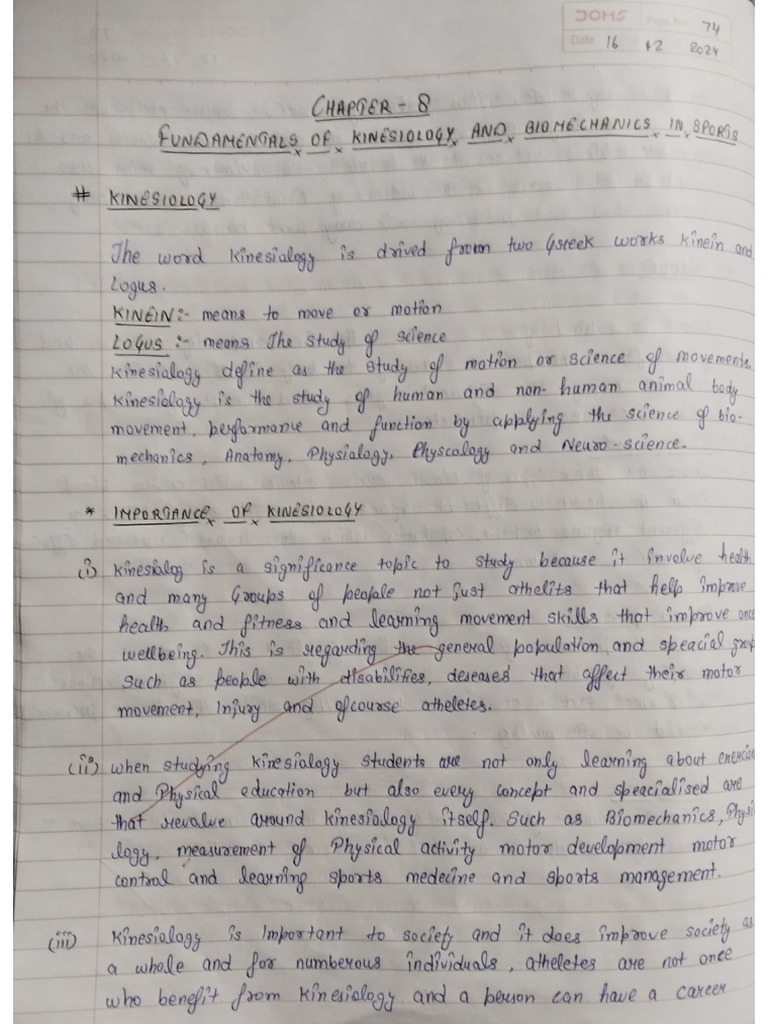 DOMS Page No. 74
Date 16 12 2024
CHAPTER - 8
FUNDAMENTALS OF KINESIOLOGY AND BIOMECHANICS IN SPORTS
# KINESIOLOGY
The word kinesialogy is drived from two Greek works kinein and
Logus.
KINEIN :- means to move or motion
LOGUS :- means The study of science
Kinesialogy define as the study of motion or science of movements.
Kinesialogy is the study of human and non-human animal body
movement, performance and function by applying the science of bio-
mechanics, Anatomy, Physialogy, Physcology and Neuro-science.
* IMPORTANCE OF KINESIOLOGY
(i) Kinesialog is a significance topic to study because it involve health
and many Groups of people not just athelits that help improve
health and fitness and learning movement skills that improve once
wellbeing. This is regarding the general population and speacial group
Such as people with disabilities, deseases that affect their motor
movement, Injury and ofcourse atheletes.
(ii) when studying kinesialogy students are not only learning about exercise
and Physical education but also every concept and speacialised are
that revalve around kinesialogy itself. Such as Biomechanics, Physi
logy, measurement of Physical activity motor development motor
control and learning sports medecine and sports management.
(iii) Kinesialogy is Important to society and it does improve society as
a whole and for numberous individuals, atheletes are not once
who benefit from kinesialogy and a person can have a career